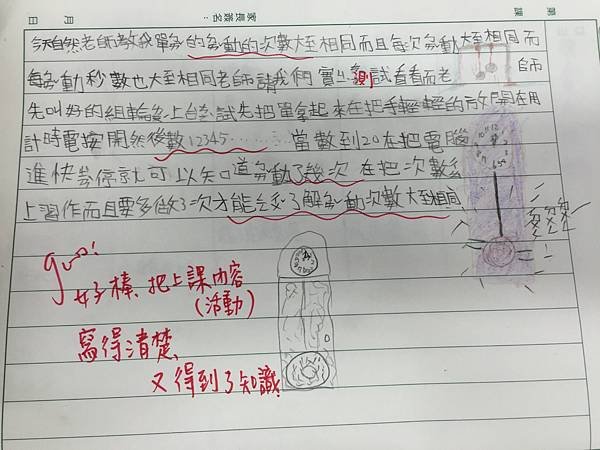 月 日 家長簽名：
今天自然老師教我單擺的擺動的次數大至相同而且每次擺動大至相同而
每擺動秒數也大至相同老師請我們實驗試看看而老師
先叫好的組輪後上台試先把單拿起來在把手輕輕的放開在用
計時電按開然後數12345………當數到20在把電腦
進快暫停就可以知道擺動了幾次在把次數
上習作而且要多做3次才能了解擺動次數大至相同
good!
好棒、把上課內容
(活動)
寫得清楚、
又得到了知識